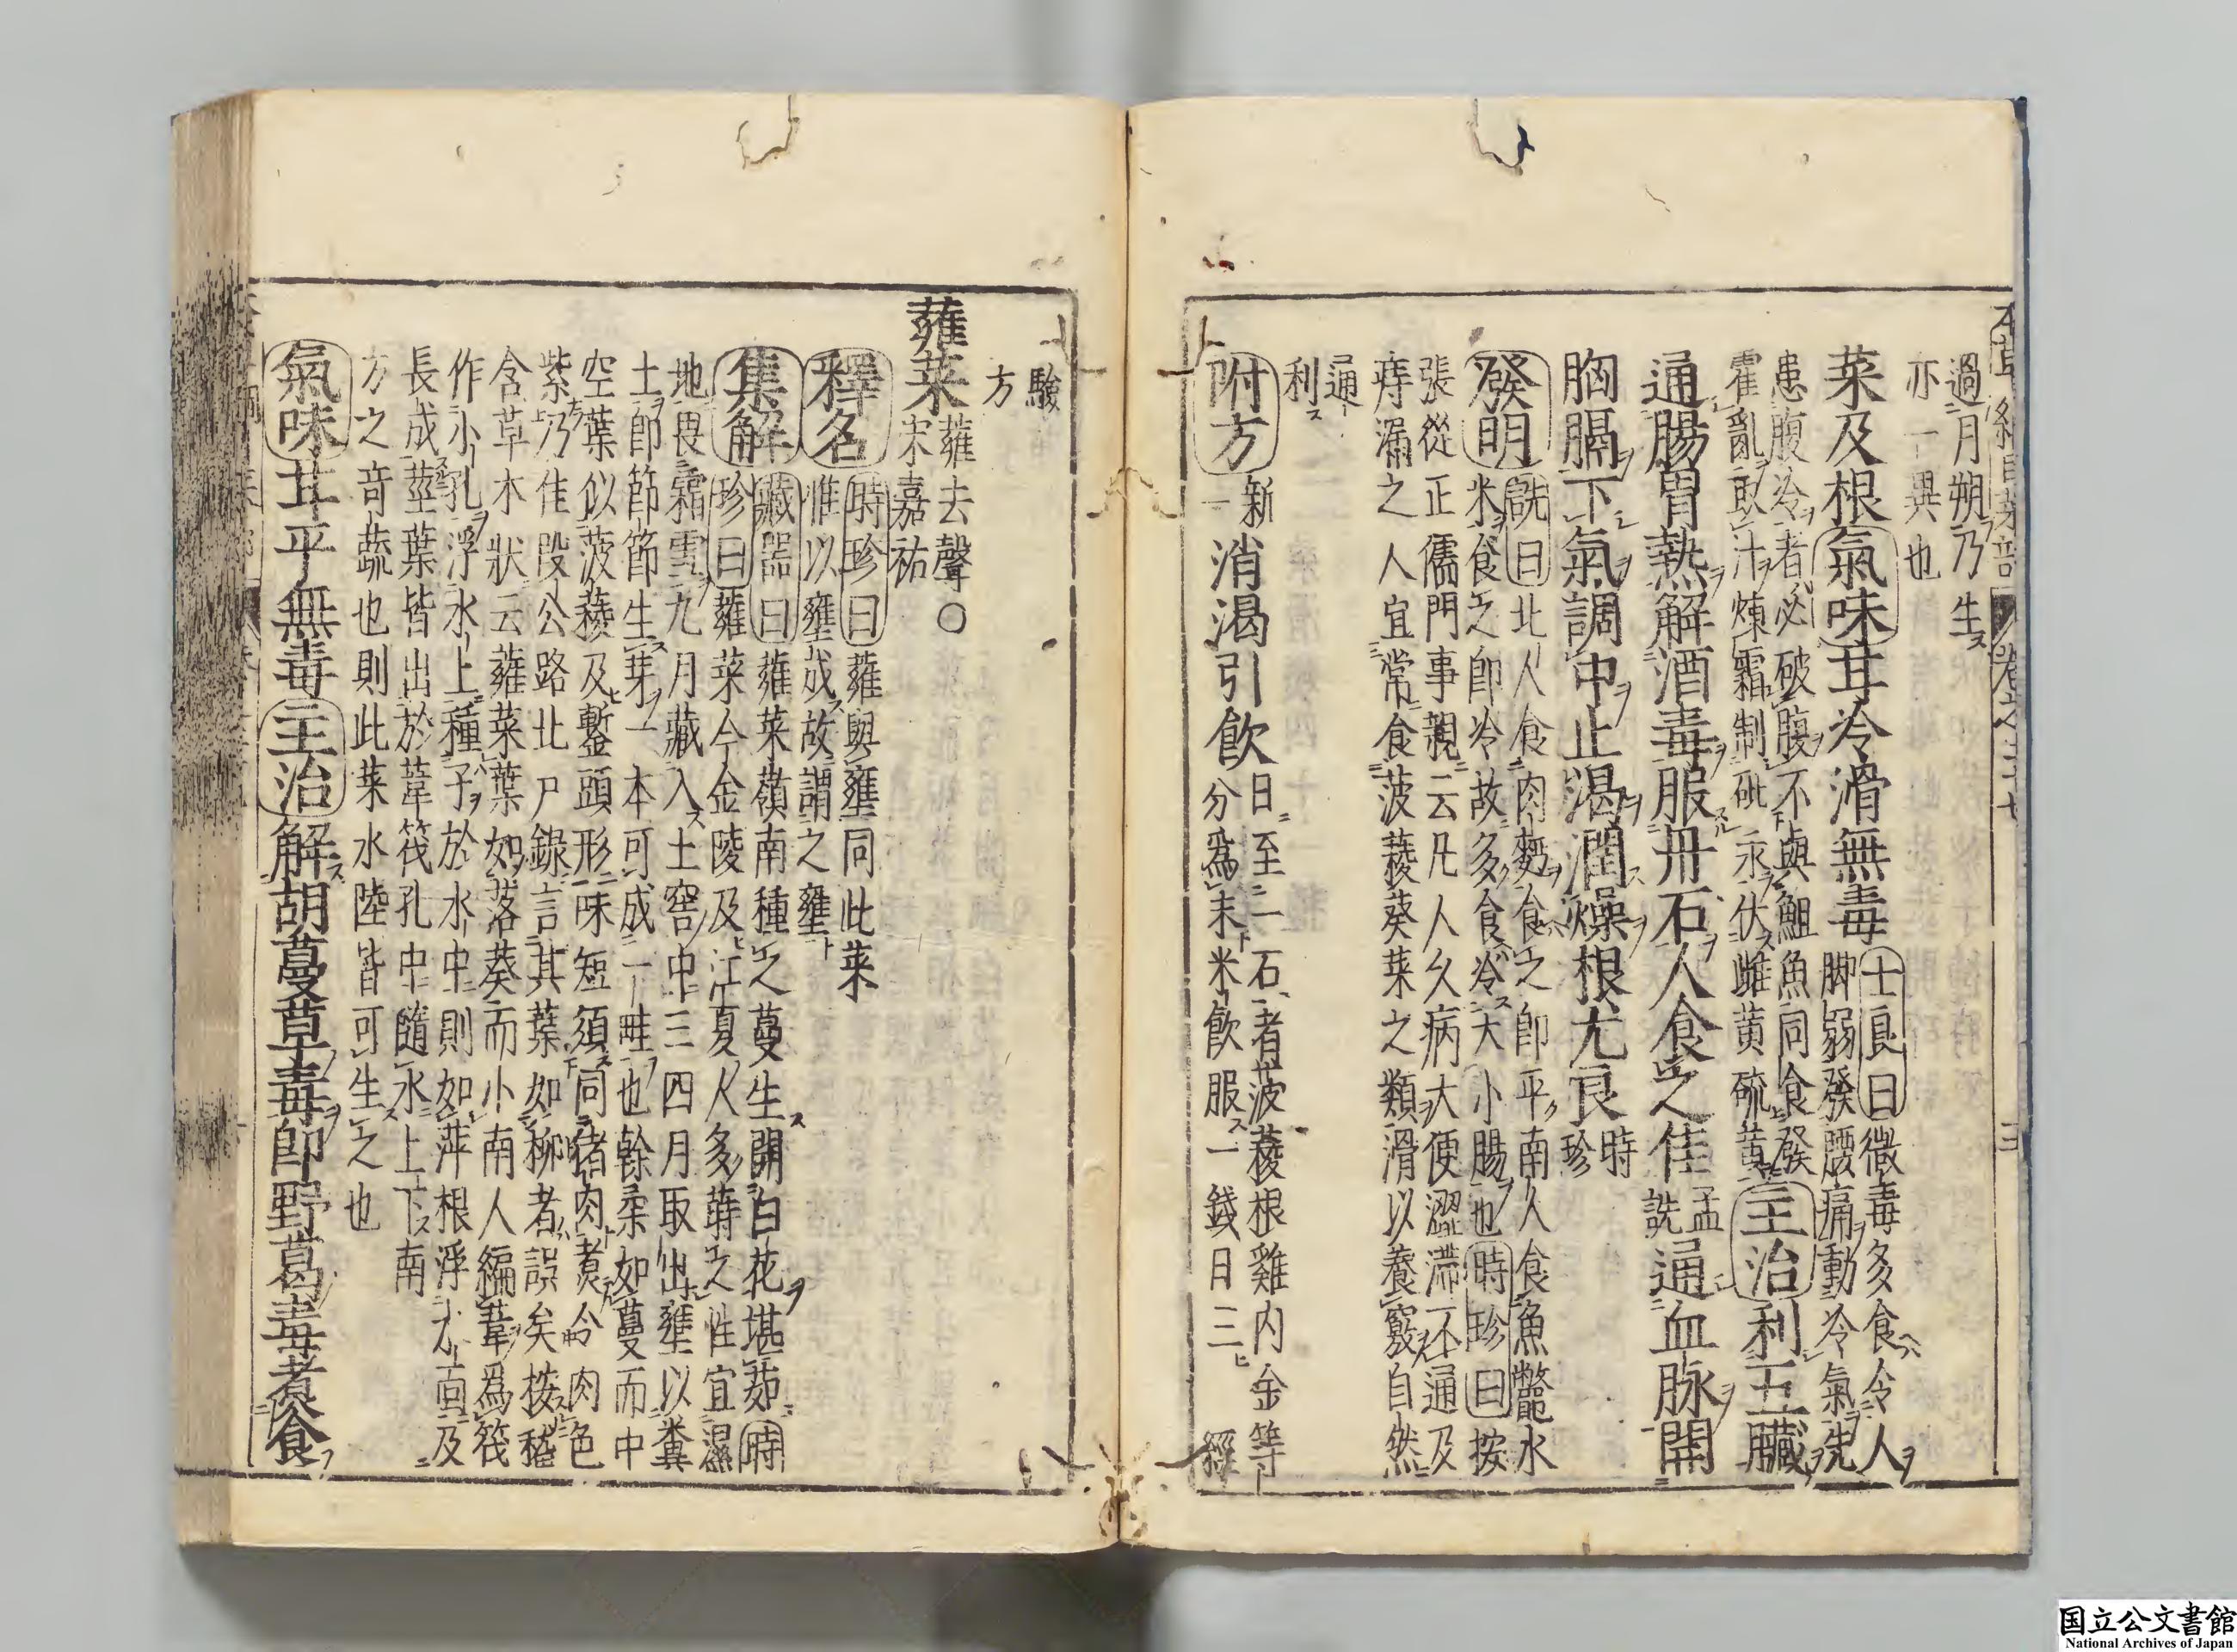 過月朔乃生
亦一異也
菜及根氣味甘冷滑無毒
士良曰微毒多食令人
脚弱發腰痛動冷氣先
患腹冷者必破腹不與䱇魚同食發
霍亂取汁煉霜制砒汞伏雌黃硫黃
主治利五臟
通腸胃熱解酒毒服丹石人食之佳孟詵通血脉開
胸膈下氣調中止渴潤燥根尤良時珍
發明詵曰北人食肉麪食之卽平南人食魚鼈水
米食之卽冷故多食冷大小腸也時珍曰按
張從正儒門事親云凡人久病大便澀滯不通及
痔漏之人宜常食菠薐葵菜之類滑以養竅自然
通
利
附方新一
消渴引飲
日至一石者菠薐根雞内金等
分爲末米飲服一錢日三 經
驗
方
蕹菜蕹去聲○
宋嘉祐
釋名時珍曰蕹與壅同此菜
惟以壅成故謂之壅
集解藏器曰蕹菜嶺南種之蔓生開白花堪茹時
珍曰蕹菜今金陵及江夏人多蒔之性宜濕
地畏霜雪九月藏入土窖中三四月取出壅以糞
土卽節節生芽一本可成一畦也幹柔如蔓而中
空葉似菠薐及鏨頭形味短須同猪肉煑令肉色
紫乃佳段公路北戸錄言其葉如柳者誤矣按嵇
含草木狀云蕹菜葉如落葵而小南人編葦爲筏
作小孔浮水上種子於水中則如萍根浮水面及
長成莖葉皆出於葦筏孔中隨水上下南
方之竒蔬也則此菜水陸皆可生之也
氣味甘平無毒主治解胡蔓草毒卽野葛毒煑食
国立公文書館
National Archives of Japan